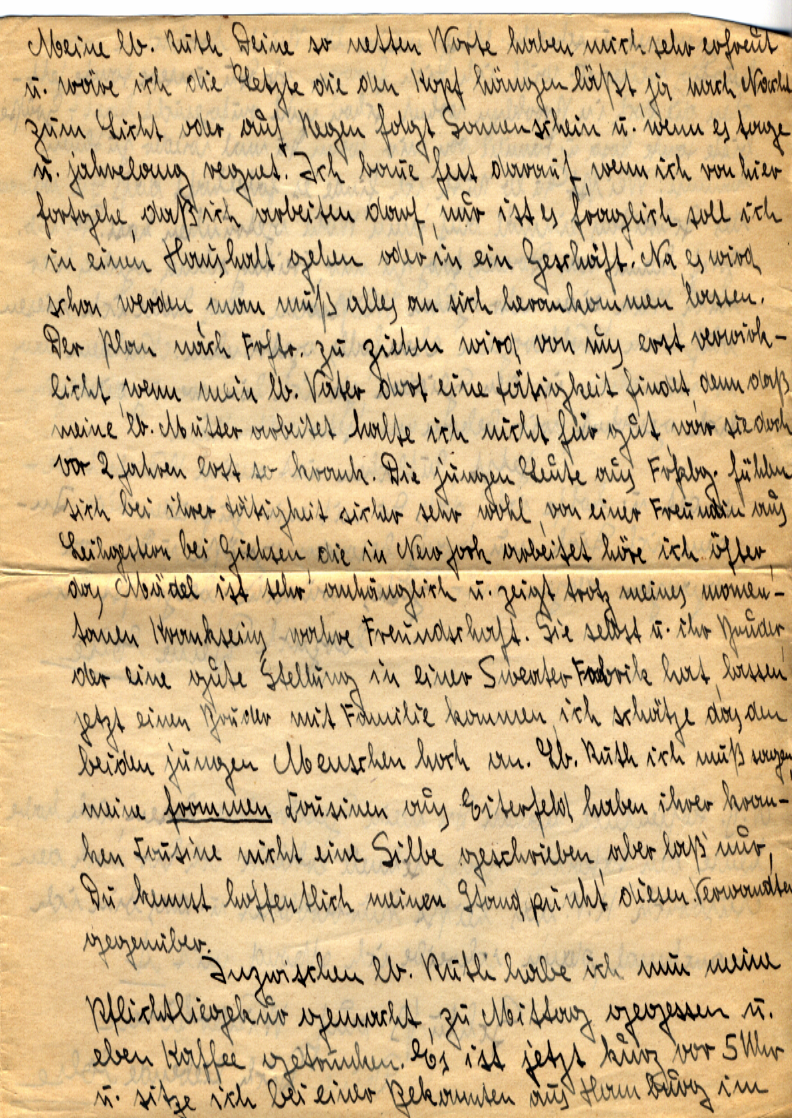 Meine lb. Ruth Deine so netten Worte haben mich sehr erfreut
u. wäre ich die Letzte die den Kopf hängen läßt ja nach Nacht
zum Licht oder auf Regen folgt Sonnenschein u. wenn es tage
u. jahrelang regnet. Ich baue fest darauf, wenn ich von hier
fortgehe, daß ich arbeiten darf, nur ist es fraglich soll ich
in einen Haushalt gehen oder in ein Geschäft. Na, es wird
schon werden man muß alles an sich herankommen lassen.
Der Plan nach Frftr. zu ziehen wird von uns erst verwirk-
licht, wenn mein lb. Vater dort eine tätigkeit findet, denn daß
meine lb. Mutter arbeitet halte ich nicht für gut, war sie doch
vor 2 Jahren erst so krank. Die jungen Leute aus fühlen
sich bei ihrer tätigkeit sicher sehr wohl, von einer Freundin aus
Leihgestern bei Giehsen, die in New York arbeitet höre ich öfter,
das Mädel ist sehr anhänglich u. zeigt trotz meines momen-
tanen Krankseins wahre Freundschaft. Sie selbst u. ihr Bruder,
der eine gute Stellung in einer Sweater Fabrik hat, lassen
jetzt einen Bruder mit Familie kommen, ich schätze das den
beiden jungen Menschen hoch an. Lb. Ruth ich muß sagen,
meine frommen Cousinen aus Eiterfeld, haben ihrer kran-
ken Cousine nicht eine Silbe geschrieben, aber laß nur,
Du kennst hoffentlich meinen Standpunkt diesen Verwandten
gegenüber.
Inzwischen lb. Ruth habe ich nun meine
Pflichtliegekur gemacht, zu Mittag gegessen u.
eben Kaffee getrunken. Es ist jetzt kurz vor 5 Uhr
u. sitze ich bei einer Bekannten aus Hamburg im